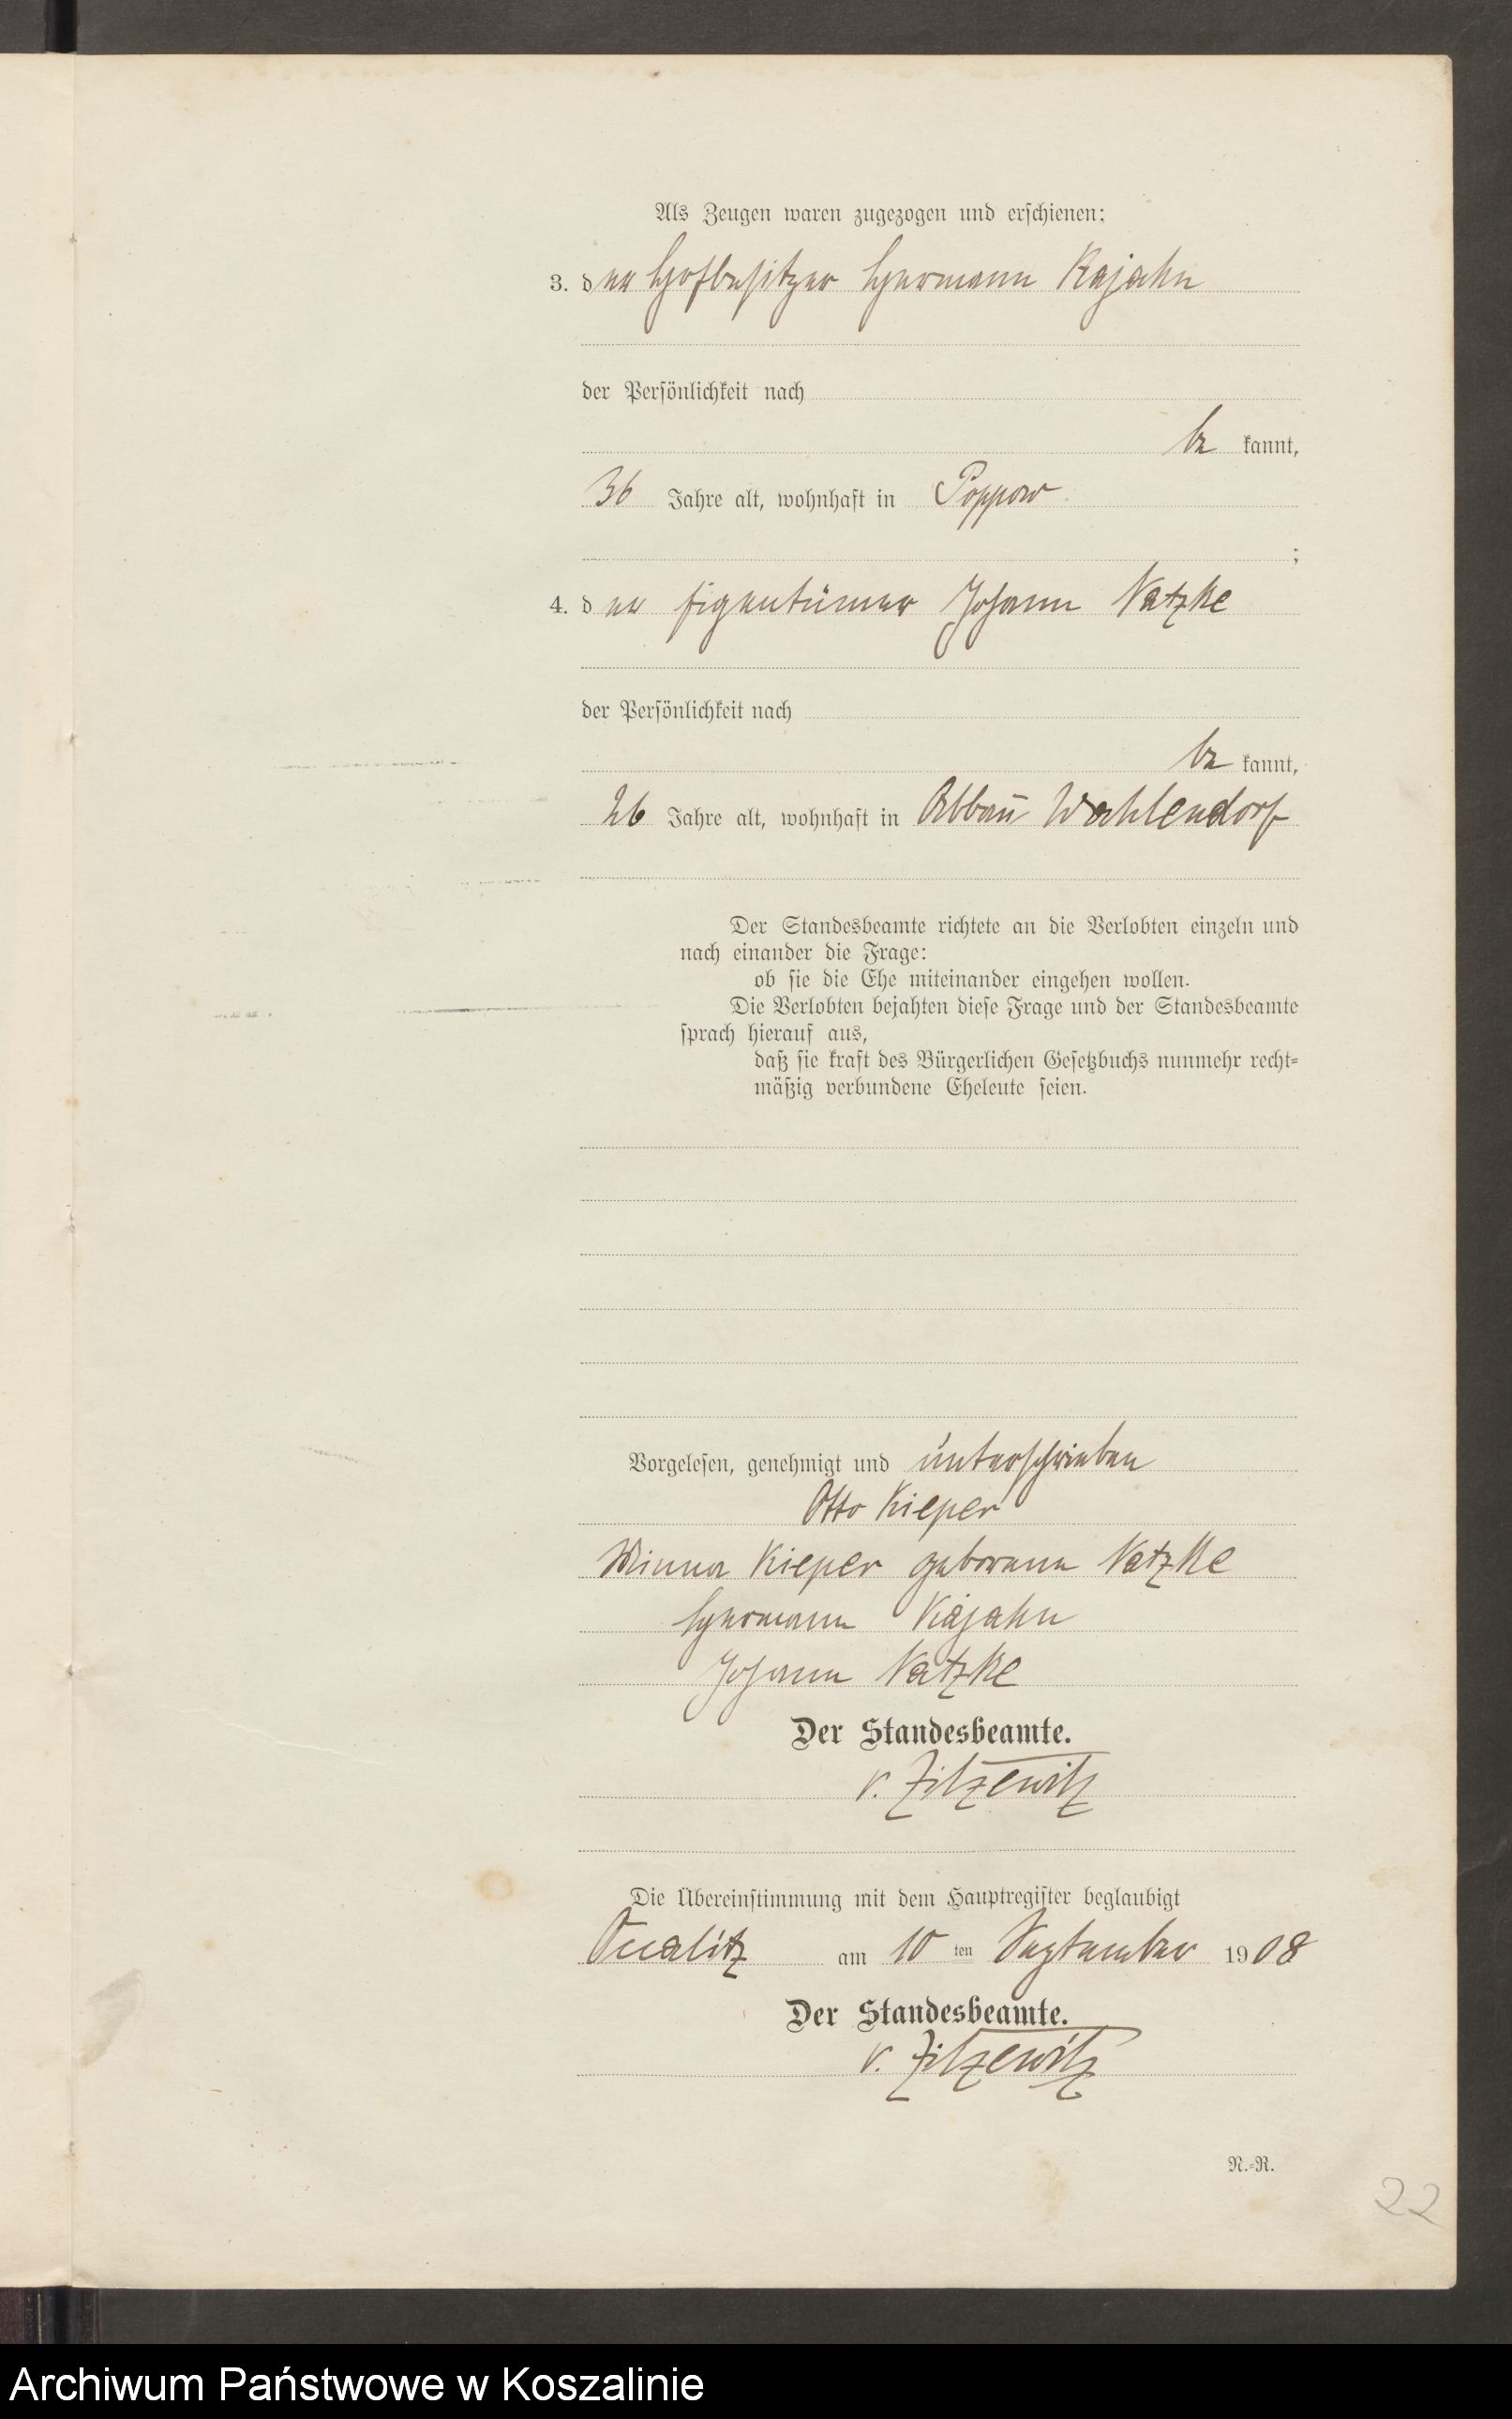 Als Zeugen waren zugezogen und erschienen:
3. der Hofbesitzer Hermann Kajahn
der Persönlichkeit nach
be kannt,
36 Jahre alt, wohnhaft in Poppow
;
4. der Eigentümer Johann Natzke
der Persönlichkeit nach
be kannt,
26 Jahre alt, wohnhaft in Abbau Wahlendorf
Der Standesbeamte richtete an die Verlobten einzeln und
nach einander die Frage:
ob sie die Ehe miteinander eingehen wollen.
Die Verlobten bejahten diese Frage und der Standesbeamte
sprach hierauf aus,
daß sie kraft des Bürgerlichen Gesetzbuchs nunmehr recht=
mäßig verbundene Eheleute seien.
Vorgelesen, genehmigt und unterschrieben
Otto Kieper
Minna Kieper geborene Natzke
Hermann Kajahn
Johann Natzke
Der Standesbeamte.
v. Zitzewitz
Die Übereinstimmung mit dem Hauptregister beglaubigt
am 10 ten September 1908
Der Standesbeamte.
v. Zitzewitz
N.=R.
22
Archiwum Państwowe w Koszalinie